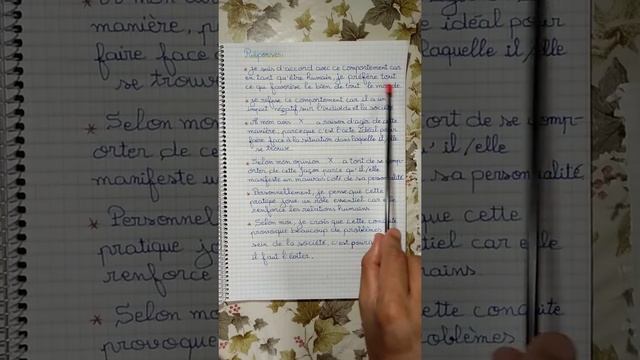 Réponses:
* Je suis d'accord avec ce comportement car
en tant qu'être humain, je préfère tout
ce qui favorise le bien de tout le monde.
* Je refuse ce comportement car il a un
impact négatif sur l'individu et la société.
* A mon avis X a raison d'agir de cette
manière, parce que c'est l'acte idéal pour
faire face à la situation dans laquelle il/elle
se trouve.
* Selon mon opinion X a tort de se comp-
orter de cette façon parce qu'il/elle
manifeste un mauvais côté de sa personnalité.
* Personnellement, je pense que cette
pratique joue un rôle essentiel car elle
renforce les relations humaines.
* Selon moi, je crois que cette conduite
provoque beaucoup de problèmes
sein de la société, c'est pourquoi
il faut l'éviter.